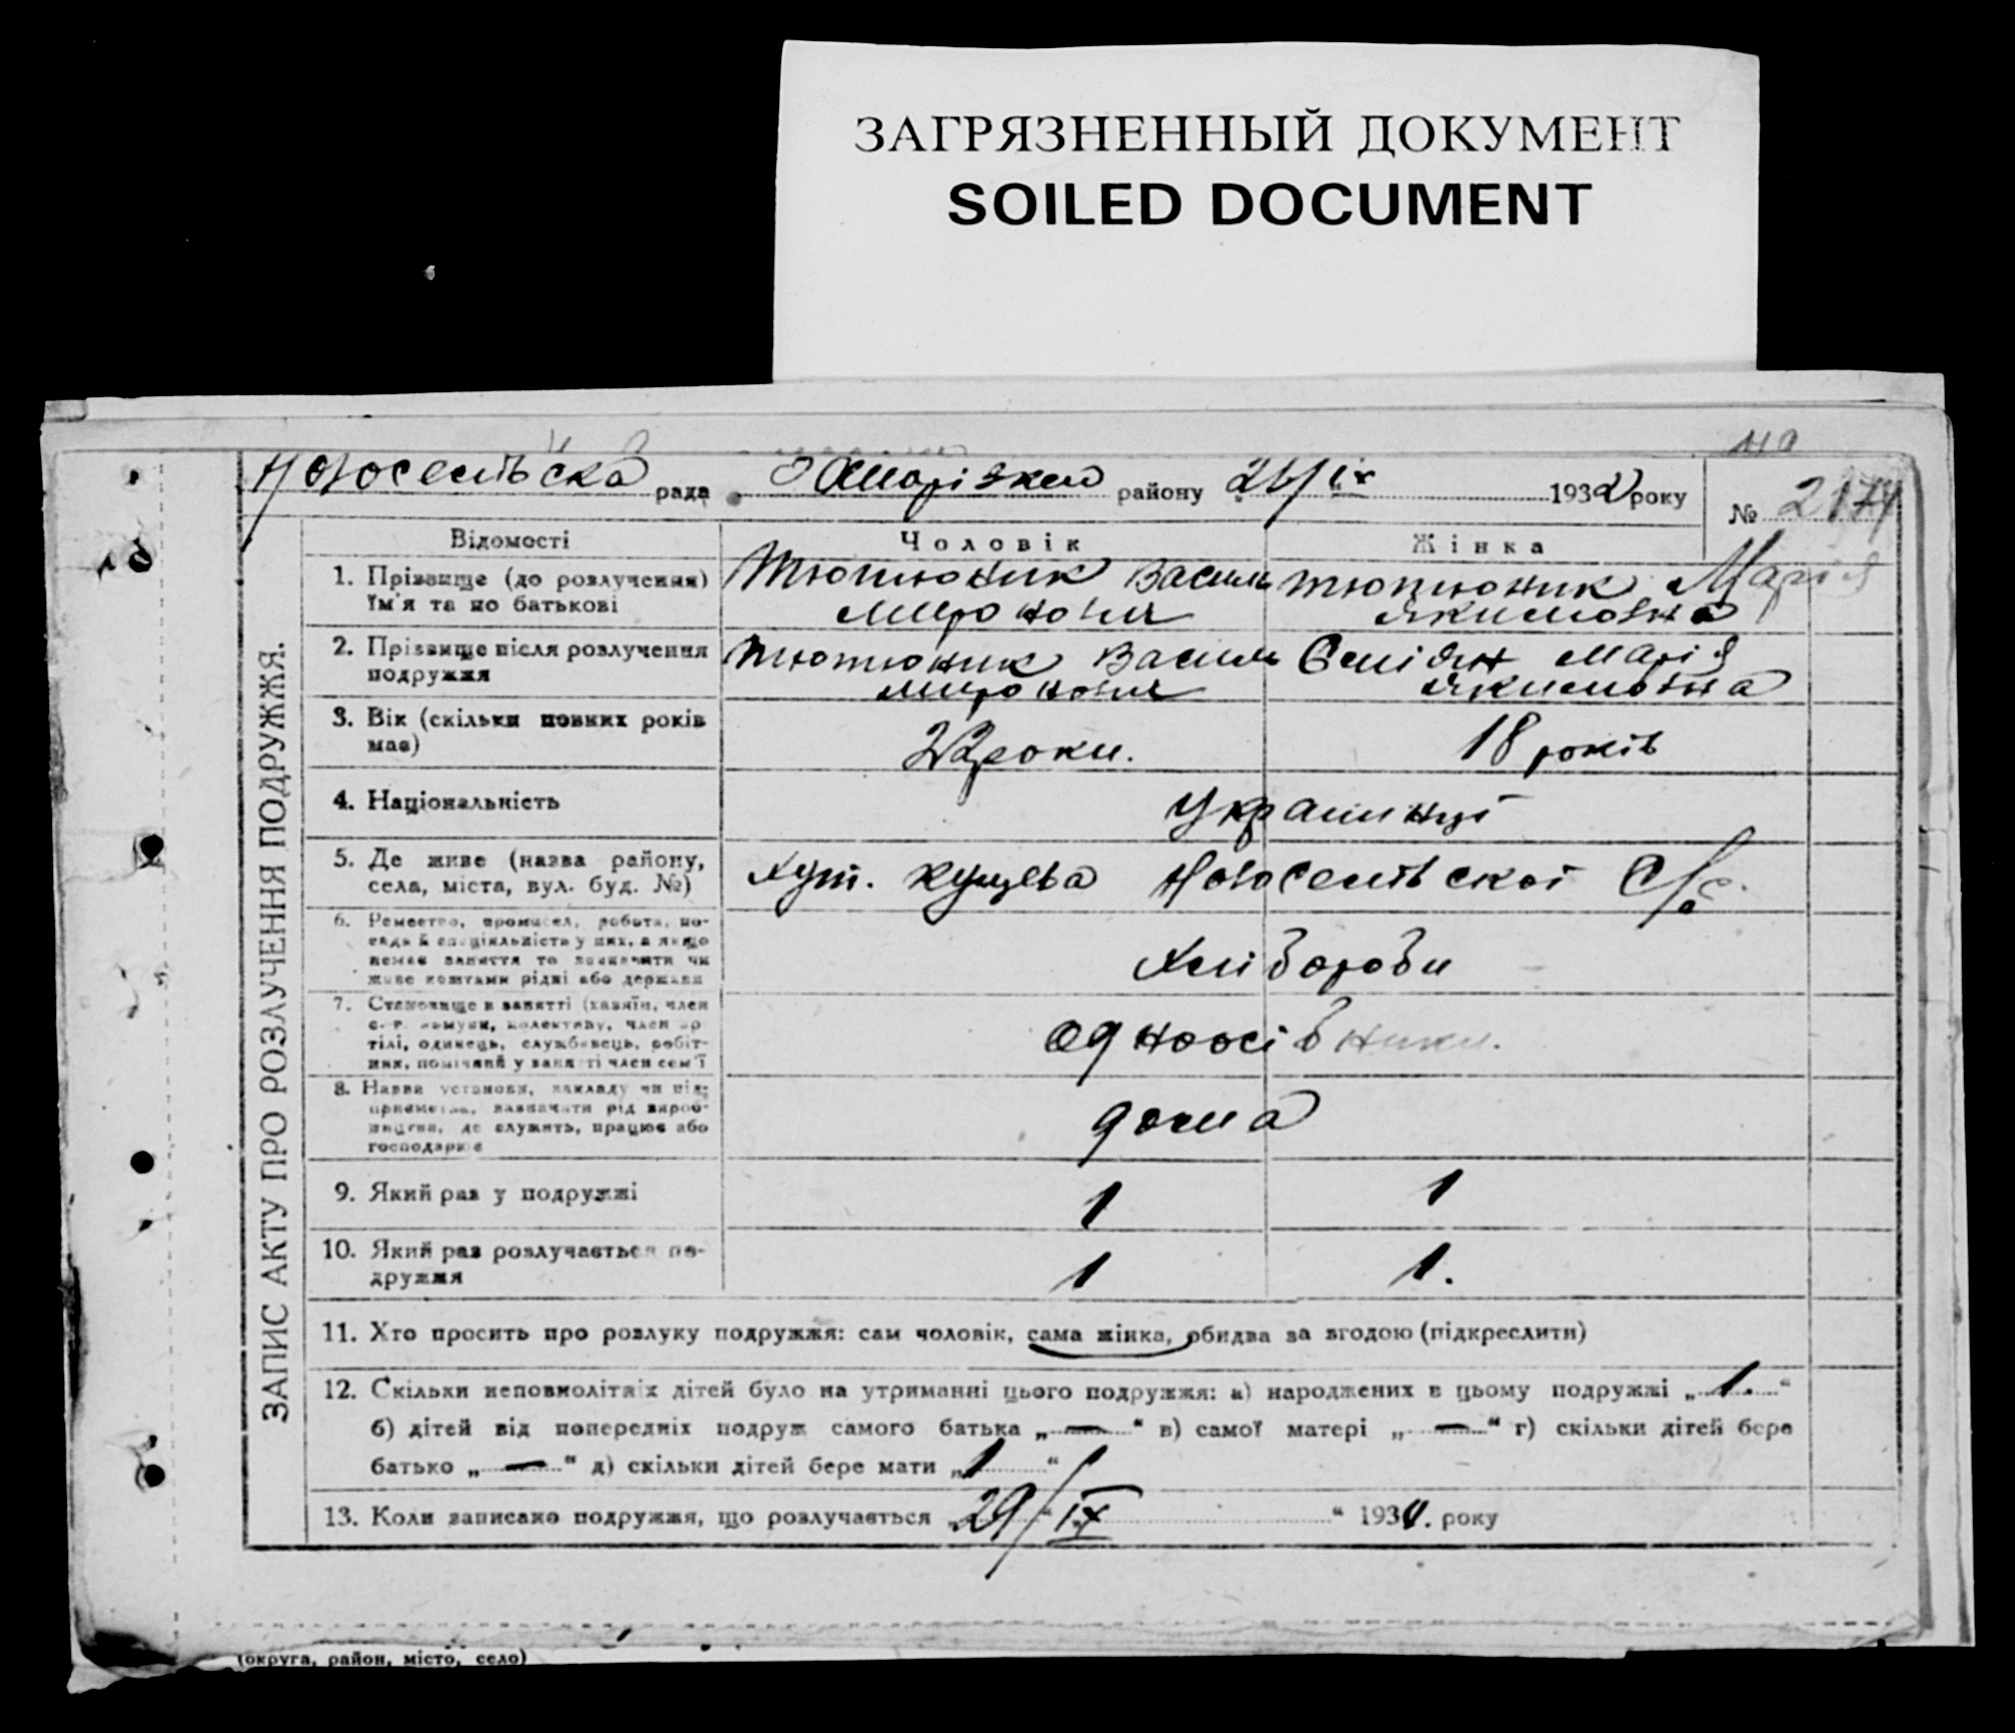 ЗАГРЯЗНЕННЫЙ ДОКУМЕНТ
SOILED DOCUMENT
Новосельська рада району 1932 року
№
ЗАПИС АКТУ ПРО РОЗЛУЧЕННЯ ПОДРУЖЖЯ.
Відомості Чоловік Жінка
1. Прізвище (до розлучення) Тютюник Василь Тютюник Марія
ім'я та по батькові Миронович Якимовна
2. Прізвище після розлучення Тютюник Василь Марія
подружжя Миронович Якимовна
3. Вік (скільки повних років
має) 22 роки. 18 років
4. Національність Украинці
5. Де живе (назва району, Хут. Куцева Новосельської С/р.
села, міста, вул. буд. №)
6. Ремество, промисел, робота, по-
сада й спеціяльність у них, а якщо
немає заняття то зазначити чи Хлібороби
живе коштами рідні або держави
7. Становище в занятті (хазяїн, член
с.-г. комуни, колективу, член ар-
тілі, одинець, службовець, робіт- одноосібники.
ник, помічний у занятті член сем'ї
8. Назва установи, закладу чи під-
приємства, зазначити рід вироб- дома
ництва, де служить, працює або
господарює
9. Який раз у подружжі 1 1
10. Який раз розлучається по- 1 1.
дружжя
11. Хто просить про розлуку подружжя: сам чоловік, сама жінка, обидва за згодою (підкреслити)
12. Скільки неповнолітніх дітей було на утриманні цього подружжя: а) народжених в цьому подружжі „1.“
б) дітей від попередніх подруж самого батька „—“ в) самої матері „—“ г) скільки дітей бере
батько „—“ д) скільки дітей бере мати „1“
13. Коли записано подружжя, що розлучається „29/IX“ 193 року
(округа, район, місто, село)